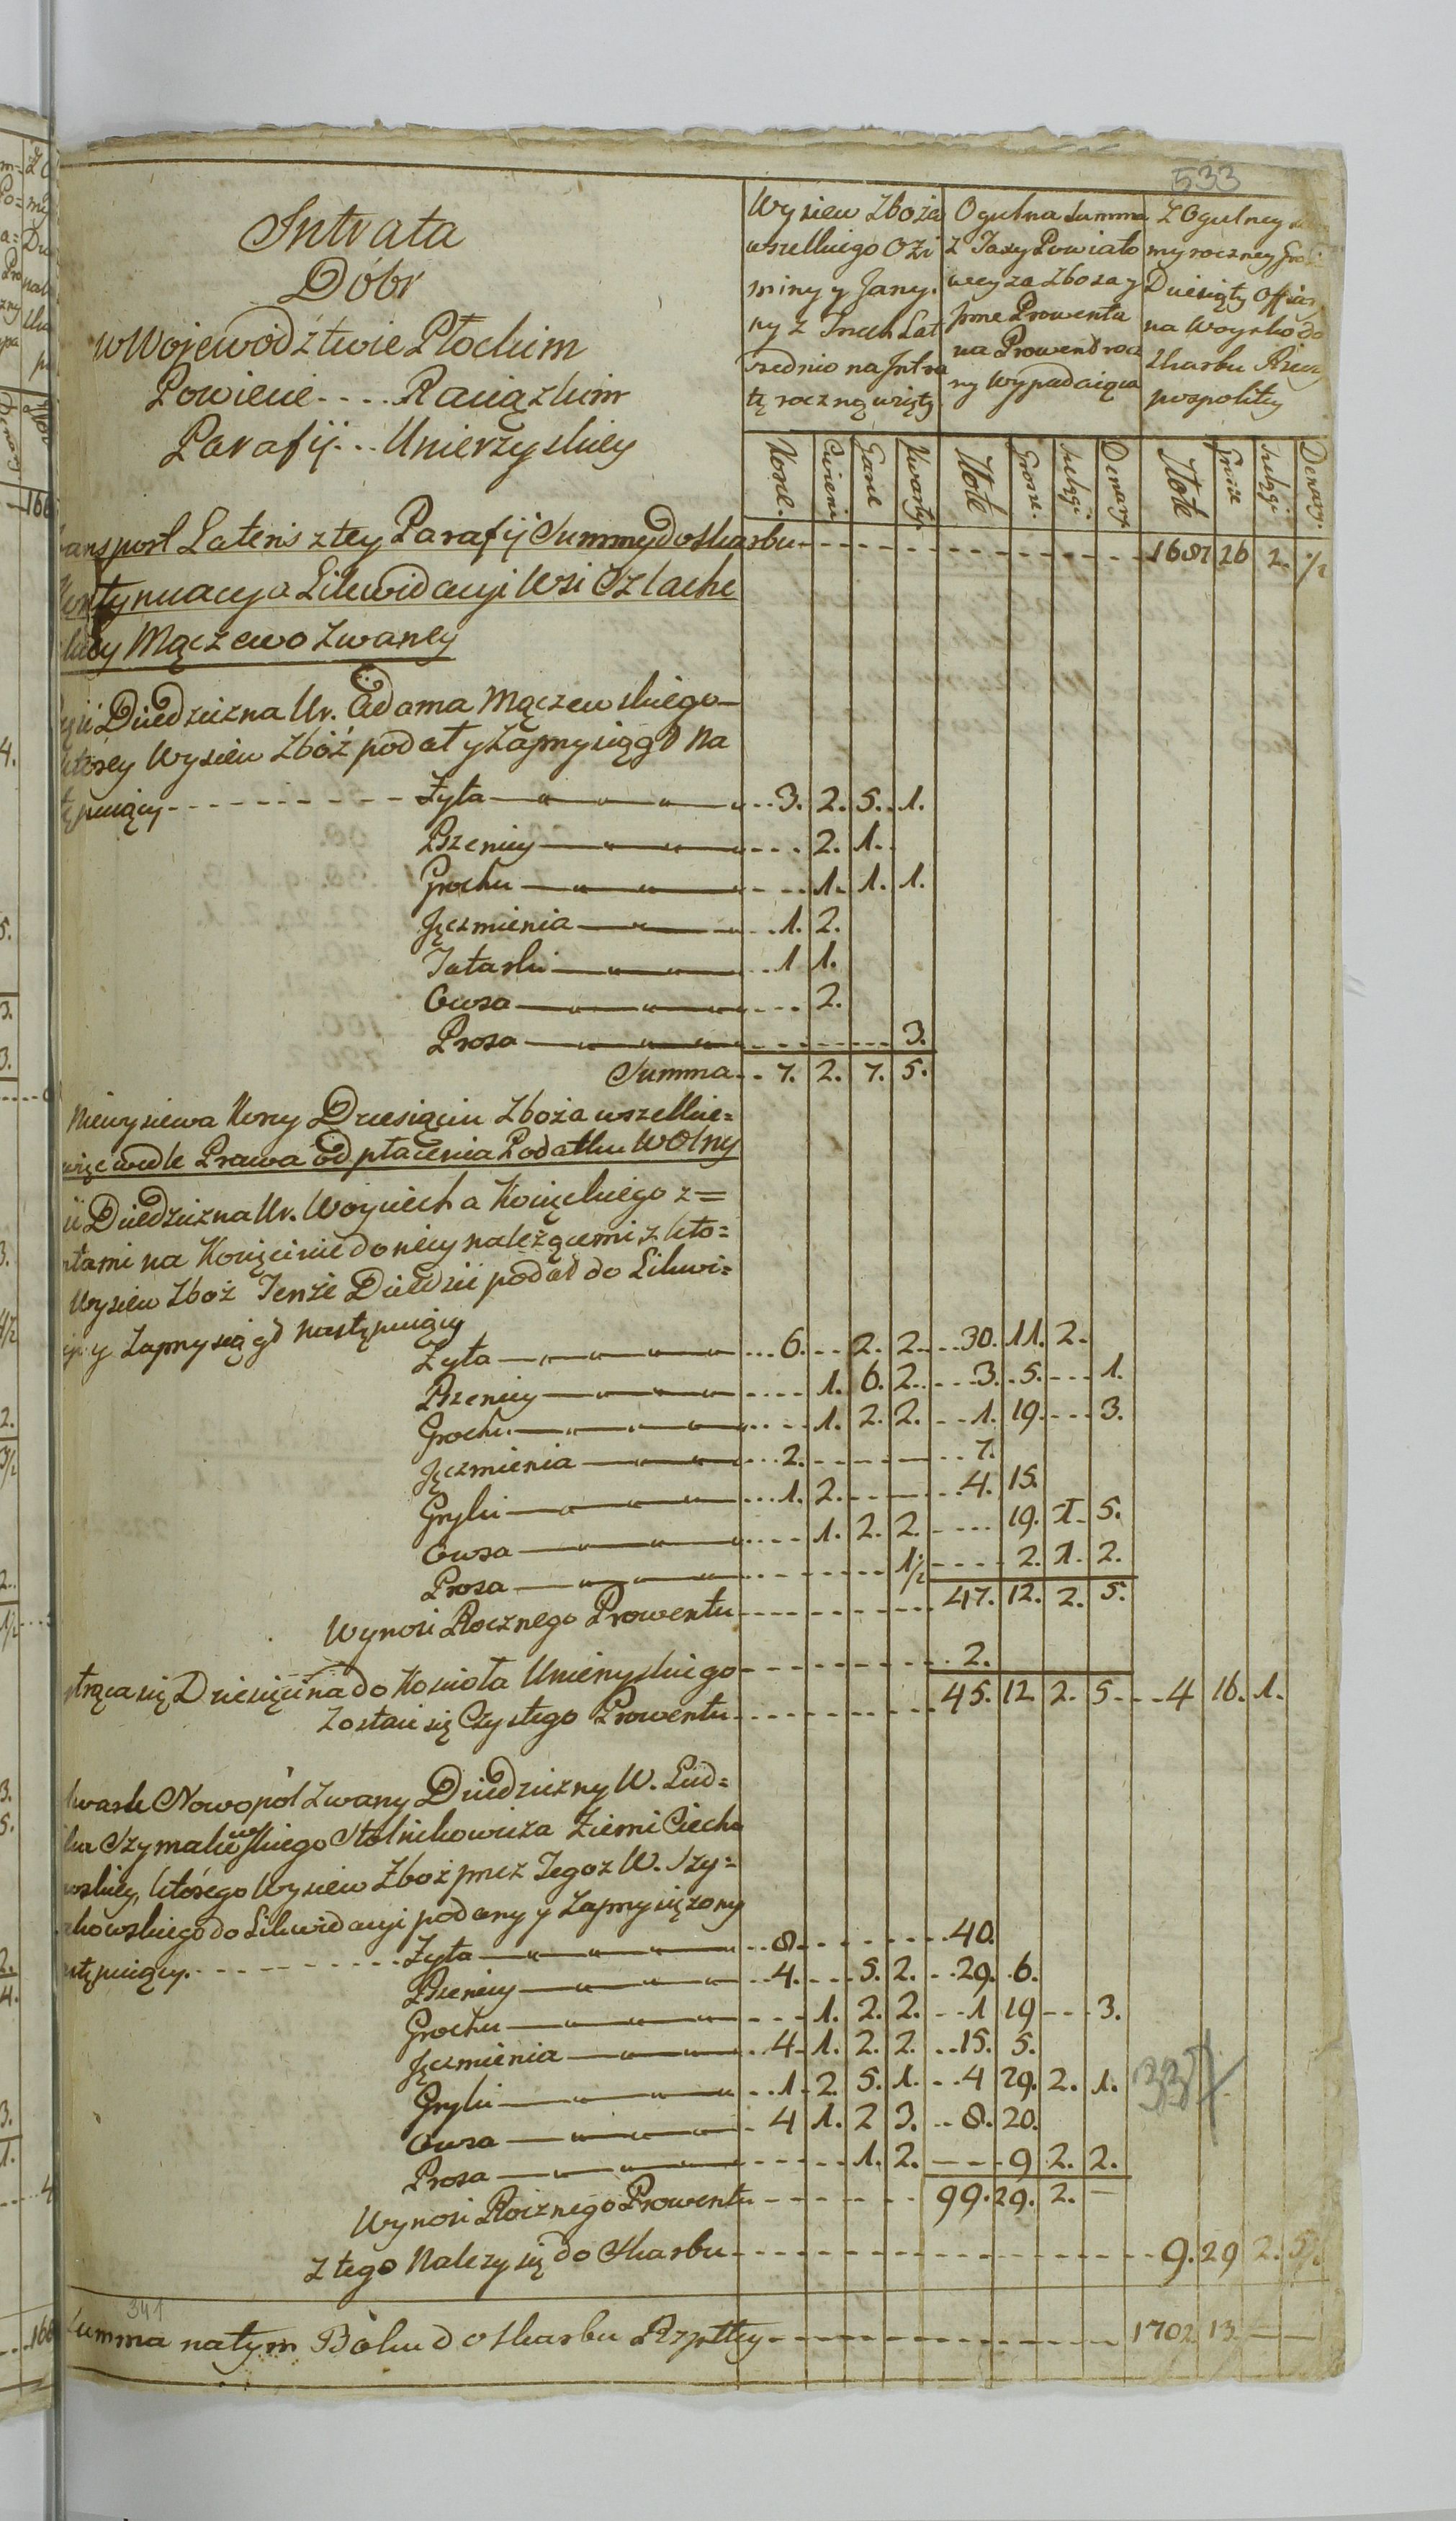 533
Intrata
Dóbr
w Wojewodztwie Płockim
Powiecie.... Raciązkim
Parafij... Unierzyskiey
Wysiew Zboża
wszelkiego Ozi
miny y Jarzy.
ny z Trzech Lat
srednio na Intra
tę roczną wzięty
Ogulna Summa
z Taxy Powiato
wey za Zboza y
jnne Prowenta
na Prowent rocz
ny Wypadaiąca
Z Ogulney
my roczney
Dziesiąty
na Woysko do
Skarbu
pospolitey
Korce. Cwierci Garce Kwarty Złote Grosze. Szelągi. Denary Złote Grosze Szelągi. Denary.
ansport Lateris z tey Parafij Summy do Skarbu 1687 26 2. 1/2
ntynuacya Likwidacyi Wsi Szlache
kiey Mączewo Zwaney
Dziedziczna Ur. Adama Mączewskiego
ktorey Wysiew Zbóż podał y Zaprzysiągł Na
tępuiący Zyta 3. 2. 5. 1.
Pszenicy 2. 1.
Grochu 1. 1. 1.
Jęczmienia 1. 2.
Tatarki 1 1.
Owsa 2.
Prosa 3.
Summa 7. 2. 7. 5.
Niewysiewa Korcy Dziesięciu Zboża wszelkie=
więc wedle Prawa od płacenia Podatku Wolny
Dziedziczna Ur. Woyciecha Kocięckiego z=
ntami na Kocięcinie do niey należącemi z kto=
Wysiew Zboż Tenże Dziedzic podał do Likwi=
y Zaprzysiągł następuiący
Zyta 6. 2. 2. 30. 11. 2.
Pszenicy 1. 6. 2. 3. 5. 1.
Grochu 1. 2. 2. 1. 19. 3.
Jęczmienia 2. 7.
Gryki 1. 2. 4. 15.
Owsa 1. 2. 2. 19. 1. 5.
Prosa 1/2 2. 1. 2.
Wynosi Rocznego Prowentu 47. 12. 2. 5.
trąca się Dziesięcina do Koscioła Unierzyskiego 2.
Zostaie się Czystego Prowentu 45. 12. 2. 5. 4 16. 1.
lwark Nowopol Zwany Dziedziczny W. Lud=
ika Szymakowskiego Stolnikowicza Ziemi Ciecha
nowskiey, którego Wysiew Zboż przez Tegoz W. Szy=
akowskiego do Likwidacyi podany y Zaprzysiężony
następuiący. Zyta 8. 40.
Pszenicy 4. 5. 2. 29. 6.
Grochu 1. 2. 2. 1 19 3.
Jęczmienia 4. 1. 2. 2. 15. 5.
Gryki 1. 2. 5. 1. 4 29. 2. 1.
Owsa 4 1. 2 3. 8. 20.
Prosa 1. 2. 9 2. 2.
Wynosi Rocznego Prowentu 99. 29. 2. —
Z tego Nalezy się do Skarbu 9. 29 2.
341
Summa na tym Boku do Skarbu Rzpltey 1702 13 — —